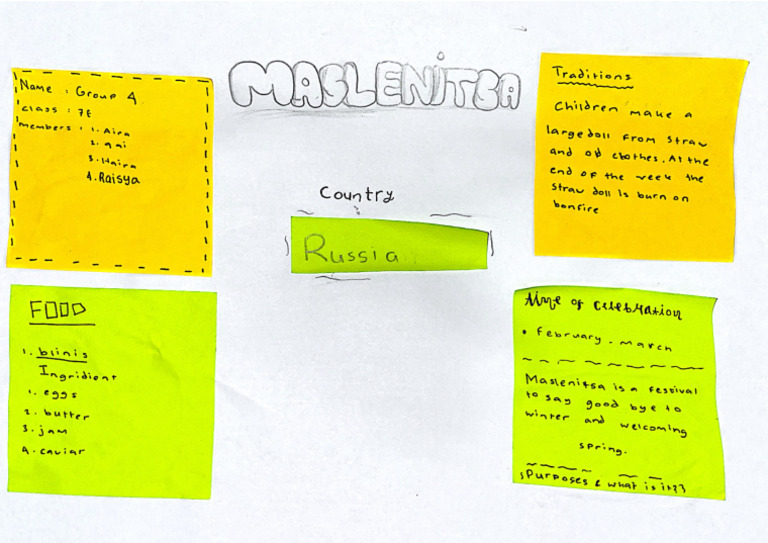 MASLENITSA
Name : Group 4
class : 7E
members : 1. Aira
2. qai
3. Haira
4. Raisya
Country
Russia
Traditions
Children make a
large doll from straw
and old clothes. At the
end of the week the
straw doll is burn on
bonfire
FOOD
1. blinis
Ingridient
1. eggs
2. butter
3. jam
4. caviar
time of celebration
• February - march
Maslenitsa is a festival
to say good bye to
winter and welcoming
spring.
{Purposes & what is it?}